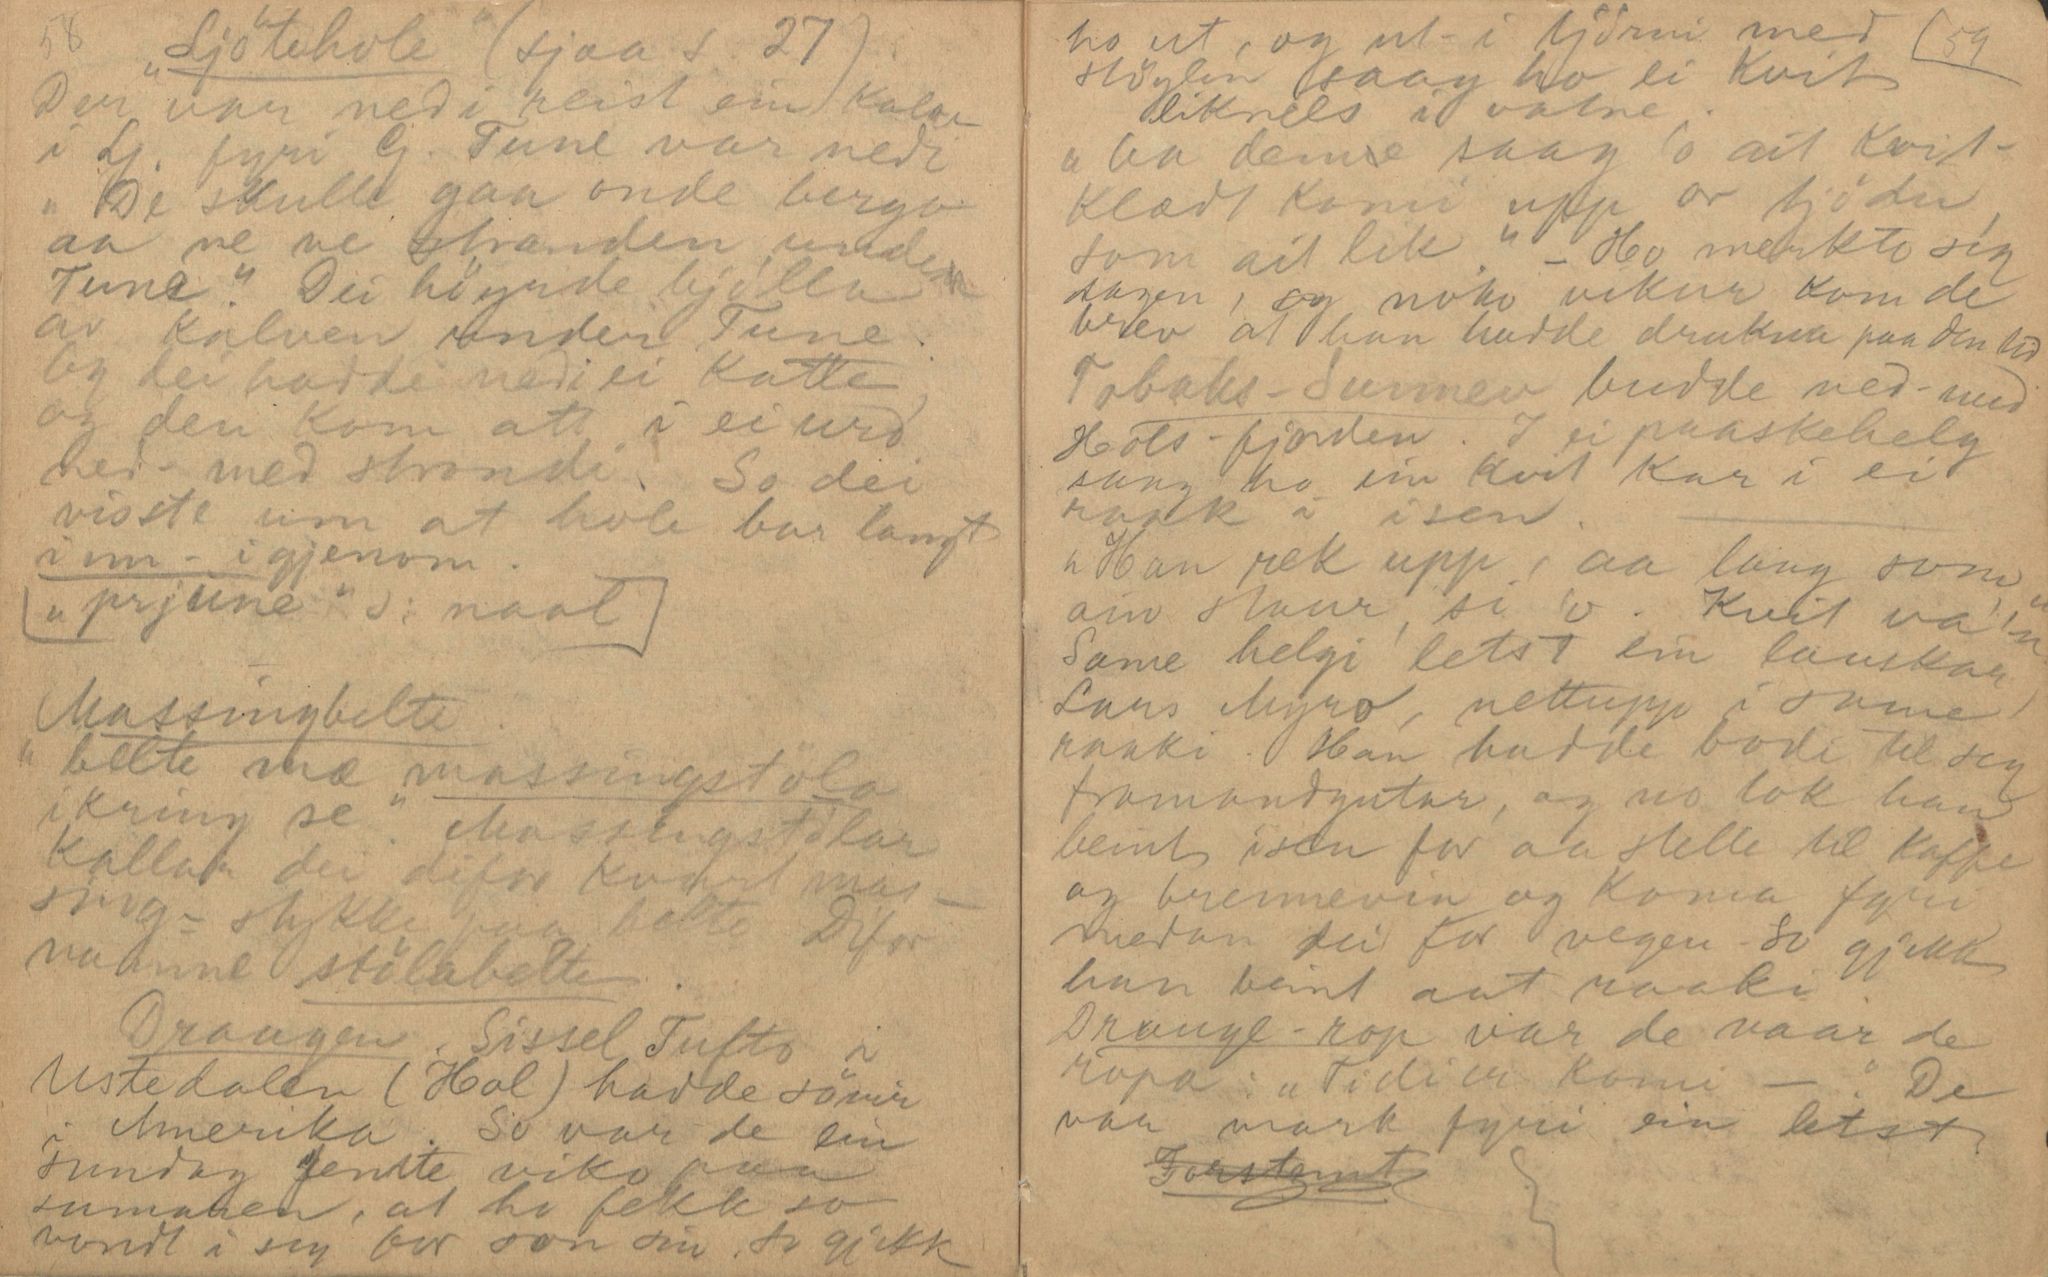 58
"Ljötehole" (sjaa s. 27)
Der var nedi reist ein kalv
i Lj. fyri Gj. Tune var nedi
"De skulle gaa onde bergo
aa ne ve stranden unde
Tune." Dei höyrde bjölla
av kalven under Tune.
Og dei hadde nedi ei katte,
og den kom att i ei urd
ned-med strondi. So dei
visste um at hole bar langt
inn-igjenom.
"prjune" s: naal
Massingbelte.
"belte mæ massingstöla
ikring se." Massingstölar
kallar dei difor kvart mas-
sing-stykke paa belte. Difor
namne stölabelte.
Draugen. Sissel Tufto i
Ustedalen (Hol) hadde söner
i Amerika. So var de ein
sundag femte viko paa
sumaren, at ho fekk so
vondt i seg for son sin. So gjekk
59
ho ut, og ut-i tjörni med
stöylen saag ho ei kvit
liknels i vatne.
"Ba denne saag 'o ait kvit-
klædt komi upp or tjödn,
som ait lik." - Ho merkte seg
dagen, og noko vikur kom de
brev at han hadde drukna paa den tid
Tobaks-Sunnev budde ned-med
Hols-fjorden. I ei paaskehelg
saag ho ein kvit kar i ei
raak i isen.
"Han rek upp, aa lang som
ain staur, si 'o. Kvit va 'n"
Same helgi letst ein lauskar
Lars Myro, nettupp i same
raaki. Han hadde bode til seg
framandgutar, og no tok han
beint isen for aa stelle til kaffe
og brennevin og koma fyri
medan dei for vegen. So gjekk
han beint aat raaki.
Drauge-rop var de naar de
ropa: "Tidi er komi —." De
var mark fyri ein letst